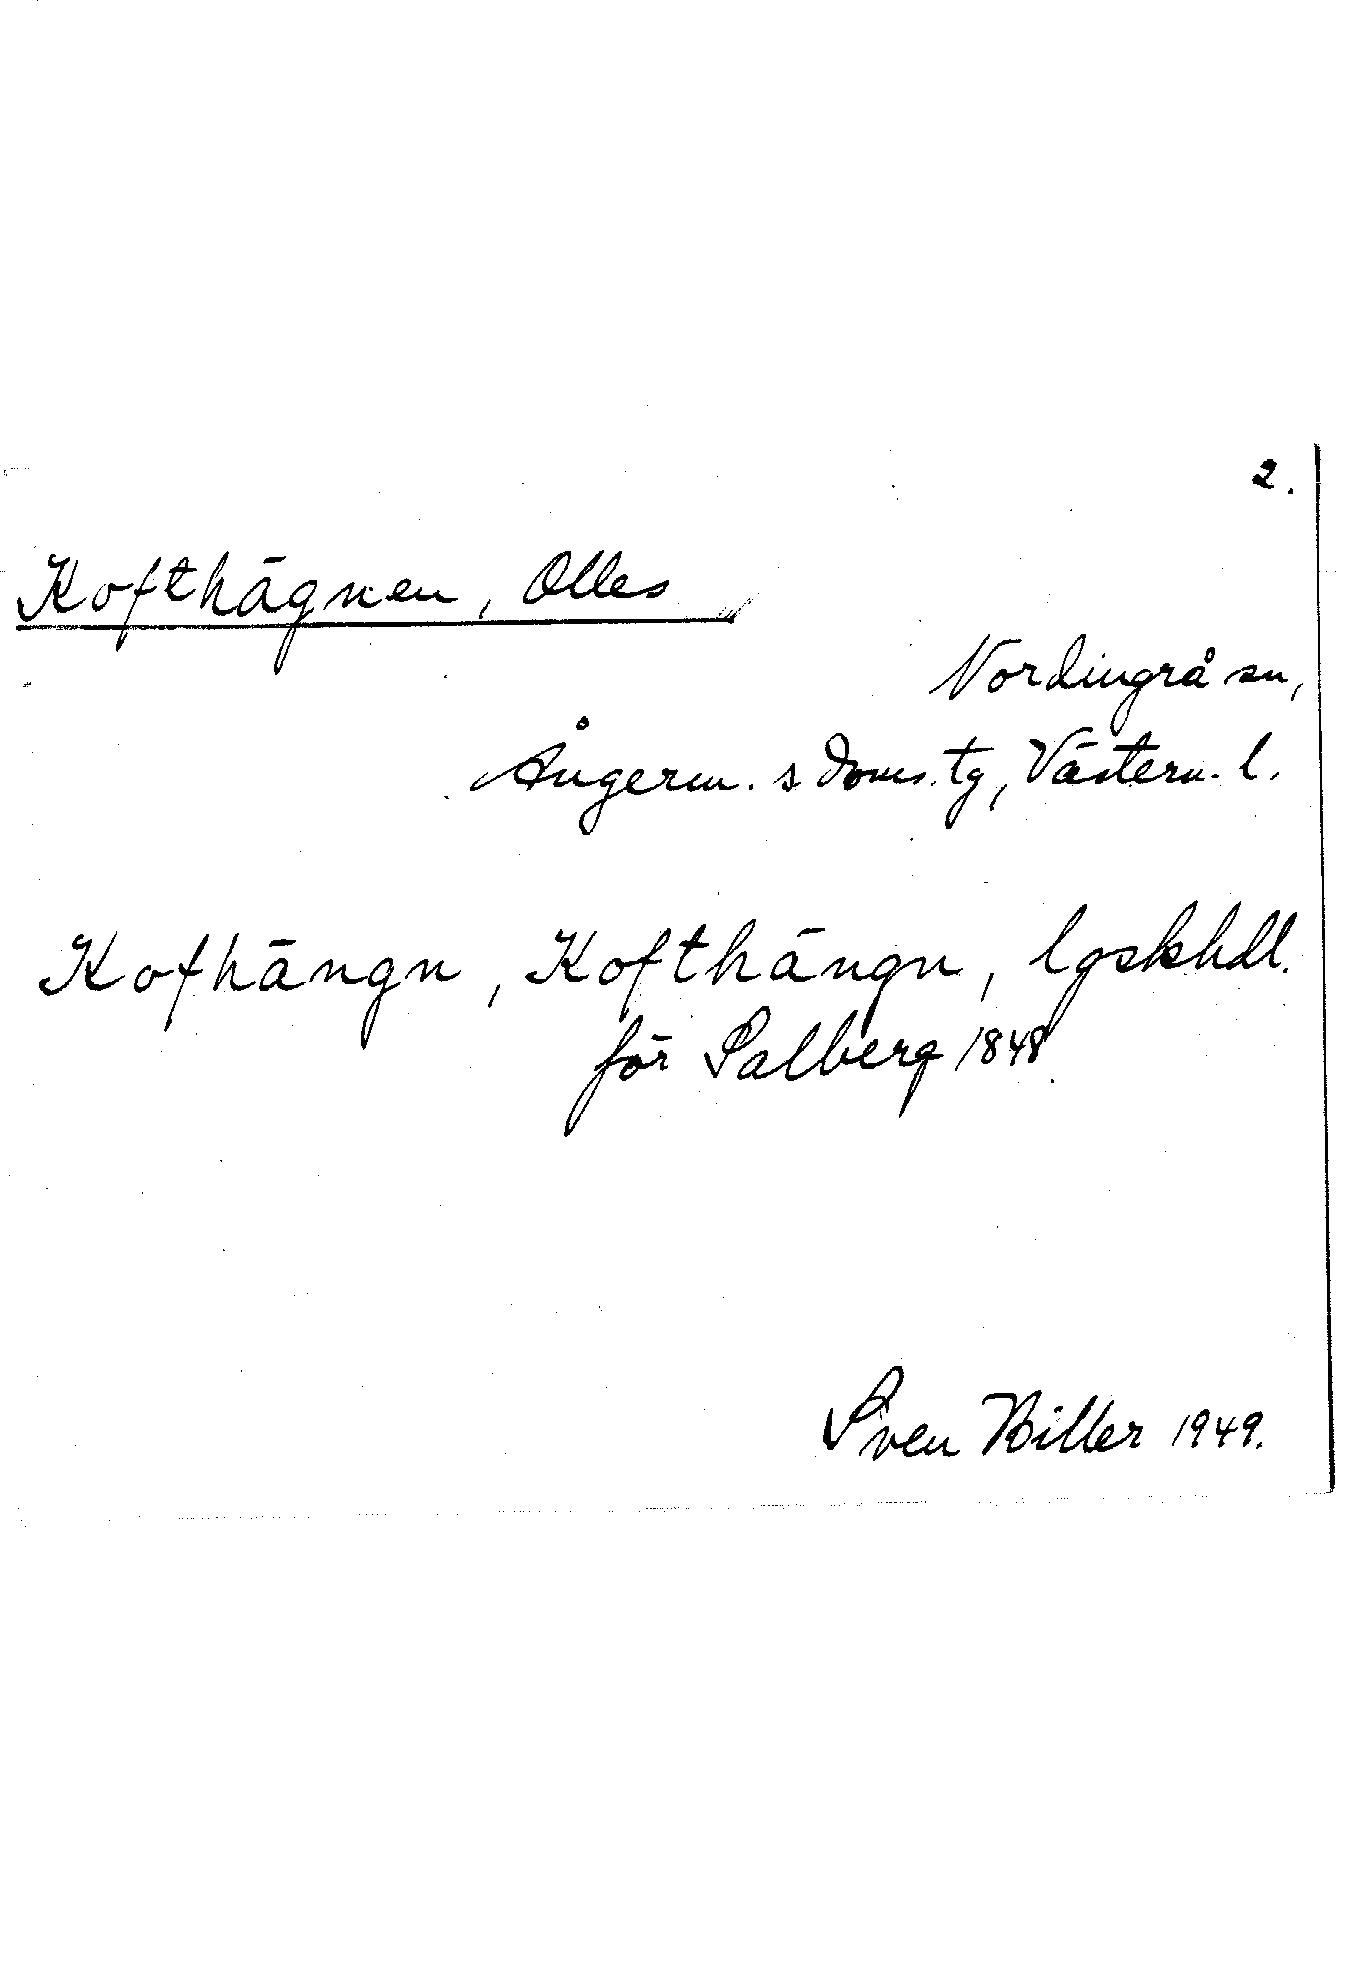 2.
Kofthägnen, Olles
Nordingrå sn,
Ångerm. s doms. tg, Västern. l.
Kofhängn, Kofthängn, lgskhdl.
för Salberg 1848
Sven Biller 1949.